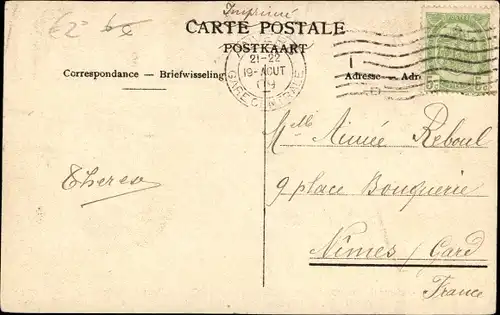 Imprimé
€2
CARTE POSTALE
POSTKAART
21-22
19 AOUT
09
GARE CENTRALE
Correspondance — Briefwisseling
Adresse — Adr
Mlle Aimée Reboul
Therese
9 place Bouquerie
Nîmes (Gard
France